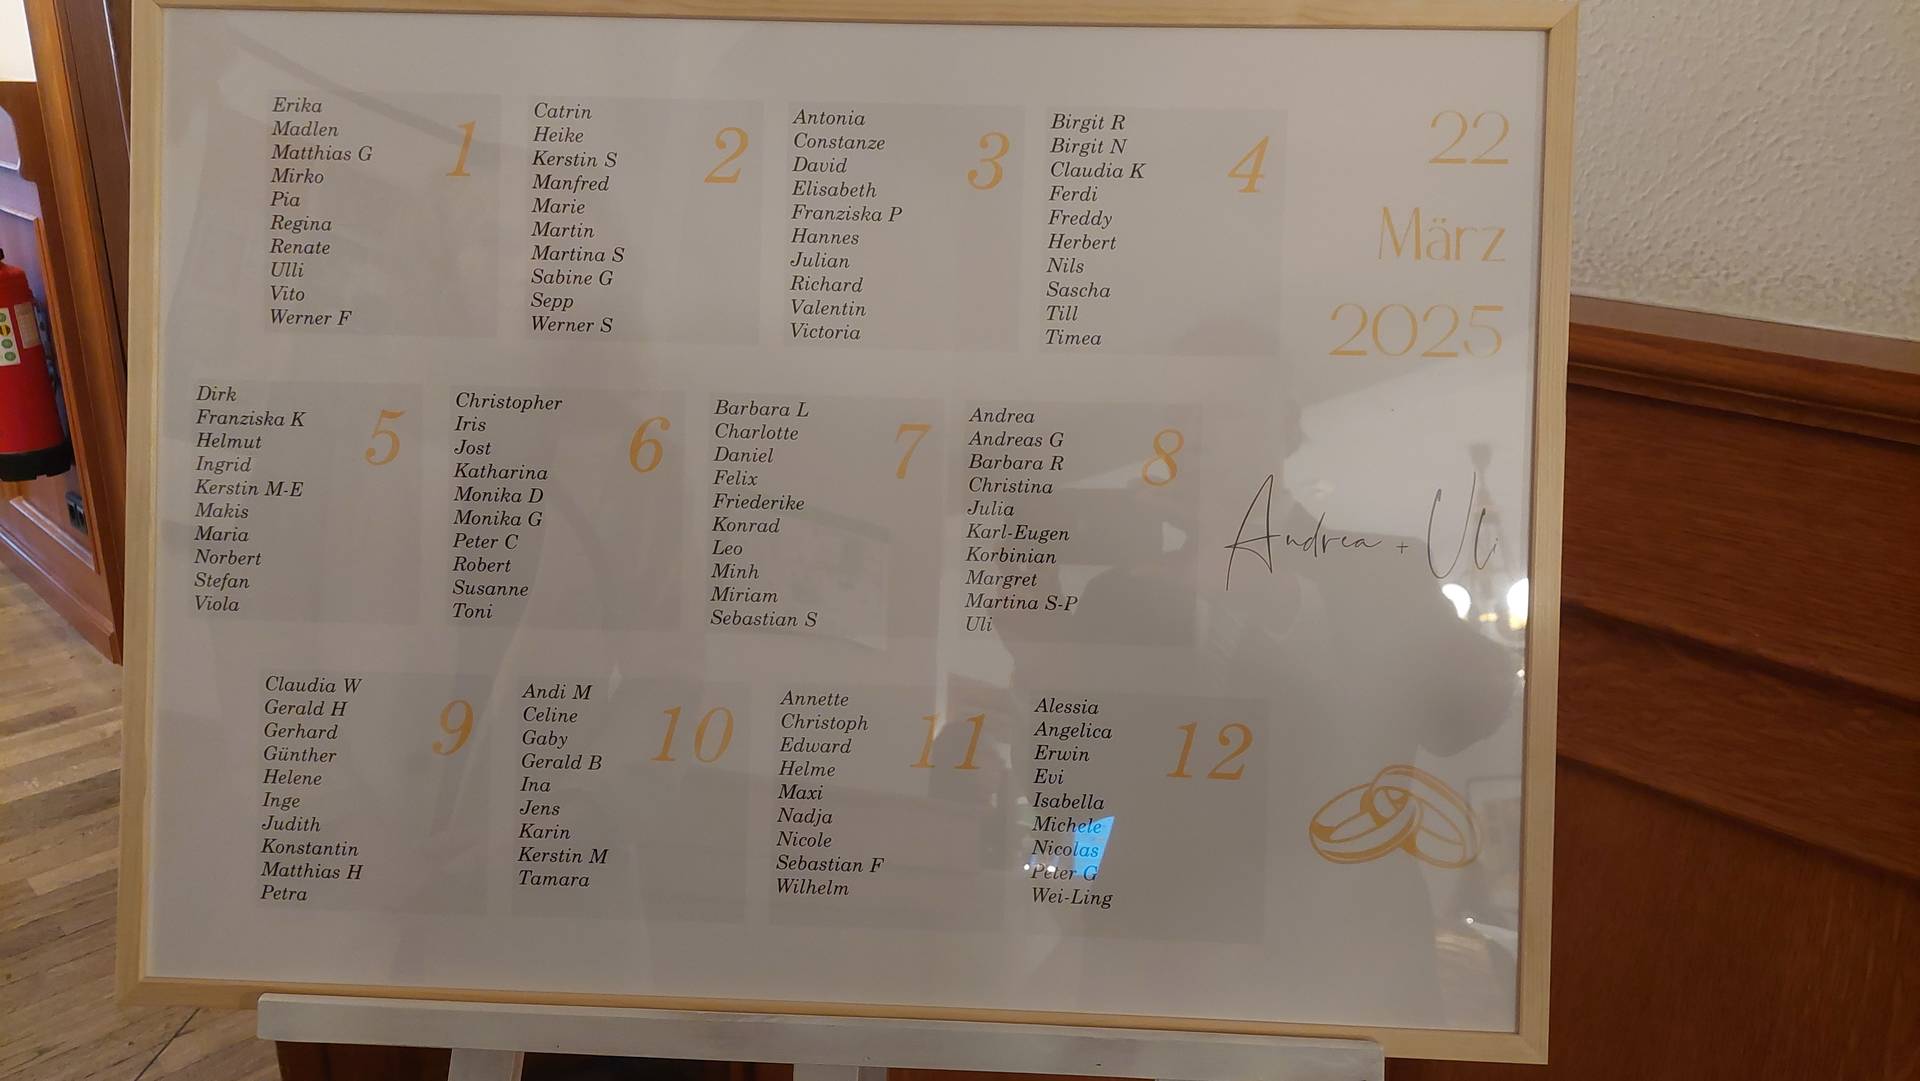 Erika
Madlen
Matthias G
Mirko
Pia
Regina
Renate
Ulli
Vito
Werner F
1
Catrin
Heike
Kerstin S
Manfred
Marie
Martin
Martina S
Sabine G
Sepp
Werner S
2
Antonia
Constanze
David
Elisabeth
Franziska P
Hannes
Julian
Richard
Valentin
Victoria
3
Birgit R
Birgit N
Claudia K
Ferdi
Freddy
Herbert
Nils
Sascha
Till
Timea
4
22
März
2025
Dirk
Franziska K
Helmut
Ingrid
Kerstin M-E
Makis
Maria
Norbert
Stefan
Viola
5
Christopher
Iris
Jost
Katharina
Monika D
Monika G
Peter C
Robert
Susanne
Toni
6
Barbara L
Charlotte
Daniel
Felix
Friederike
Konrad
Leo
Minh
Miriam
Sebastian S
7
Andrea
Andreas G
Barbara R
Christina
Julia
Karl-Eugen
Korbinian
Margret
Martina S-P
Uli
8
Andrea + Uli
Claudia W
Gerald H
Gerhard
Günther
Helene
Inge
Judith
Konstantin
Matthias H
Petra
9
Andi M
Celine
Gaby
Gerald B
Ina
Jens
Karin
Kerstin M
Tamara
10
Annette
Christoph
Edward
Helme
Maxi
Nadja
Nicole
Sebastian F
Wilhelm
11
Alessia
Angelica
Erwin
Evi
Isabella
Michele
Nicolas
Peter G
Wei-Ling
12